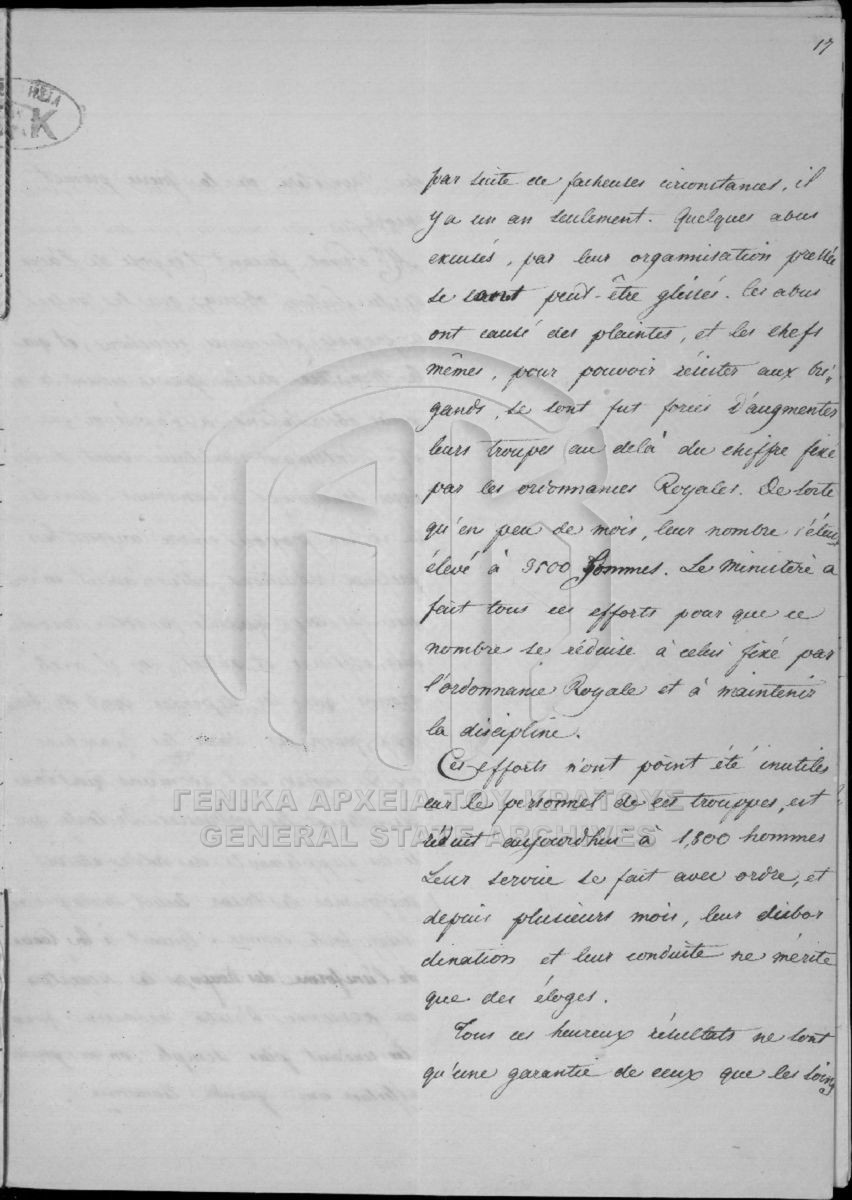 17
par suite de facheuses circonstances, il
y a un an seulement. Quelques abus
excusés, par leur organnisation pressée
se sont peut-être glissés. Ces abus
ont causé des plaintes, et les chefs
mêmes, pour pouvoir résister aux bri-
gands, se sont fut forcés d'augmenter
leurs troupes au delà du chiffre fixé
par les ordonnances Royales. De sorte
qu'en peu de mois, leur nombre s'était
élevé à 3500 hommes. Le Ministère a
fait tous ces efforts pour que ce
nombre se réduise à celui fixé par
l'ordonnance Royale et à maintenir
la discipline.
Ces efforts n'ont point été inutiles
car le personnel de ces trouppes, est
réduit aujourdhui à 1,800 hommes
Leur service se fait avec ordre, et
depuis plusieurs mois, leur disbor
dination et leur conduite ne mérite
que des éloges.
Tous ces heureux résultats ne sont
qu'une garantie de ceux que les soins
ΓΕΝΙΚΑ ΑΡΧΕΙΑ ΤΟΥ ΚΡΑΤΟΥΣ
GENERAL STATE ARCHIVES